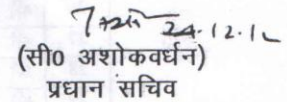 24.12.12
(सी० अशोकवर्धन)
प्रधान सचिव